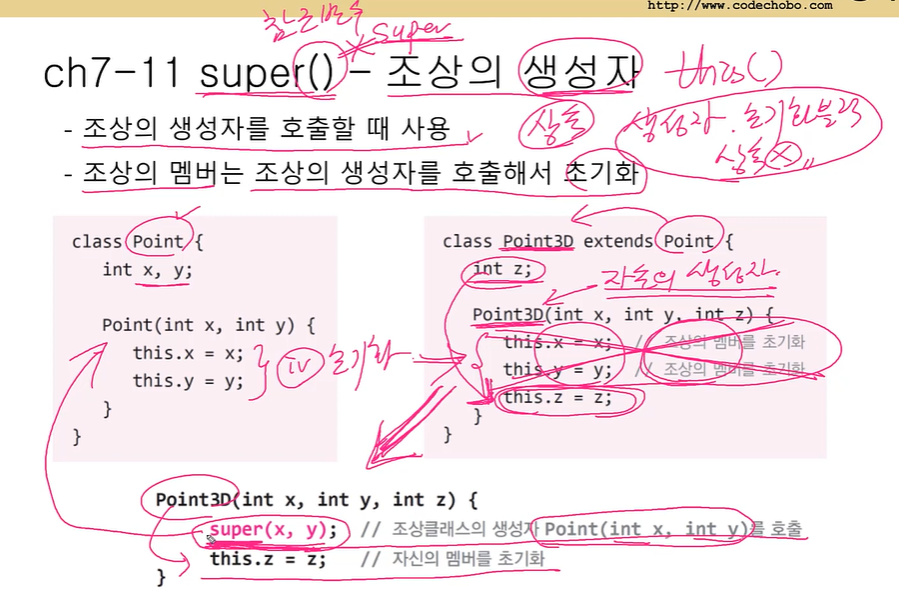 http://www.codechobo.com
참조변수
super
ch7-11 super() - 조상의 생성자
this()
- 조상의 생성자를 호출할 때 사용
상속
생성자, 초기화블럭
상속 X
- 조상의 멤버는 조상의 생성자를 호출해서 초기화
class Point {
int x, y;
Point(int x, int y) {
this.x = x;
this.y = y;
}
}
iv 초기화
class Point3D extends Point {
int z;
자손의 생성자.
Point3D(int x, int y, int z) {
this.x = x; // 조상의 멤버를 초기화
this.y = y; // 조상의 멤버를 초기화
this.z = z;
}
}
Point3D(int x, int y, int z) {
super(x, y); // 조상클래스의 생성자 Point(int x, int y)를 호출
this.z = z; // 자신의 멤버를 초기화
}